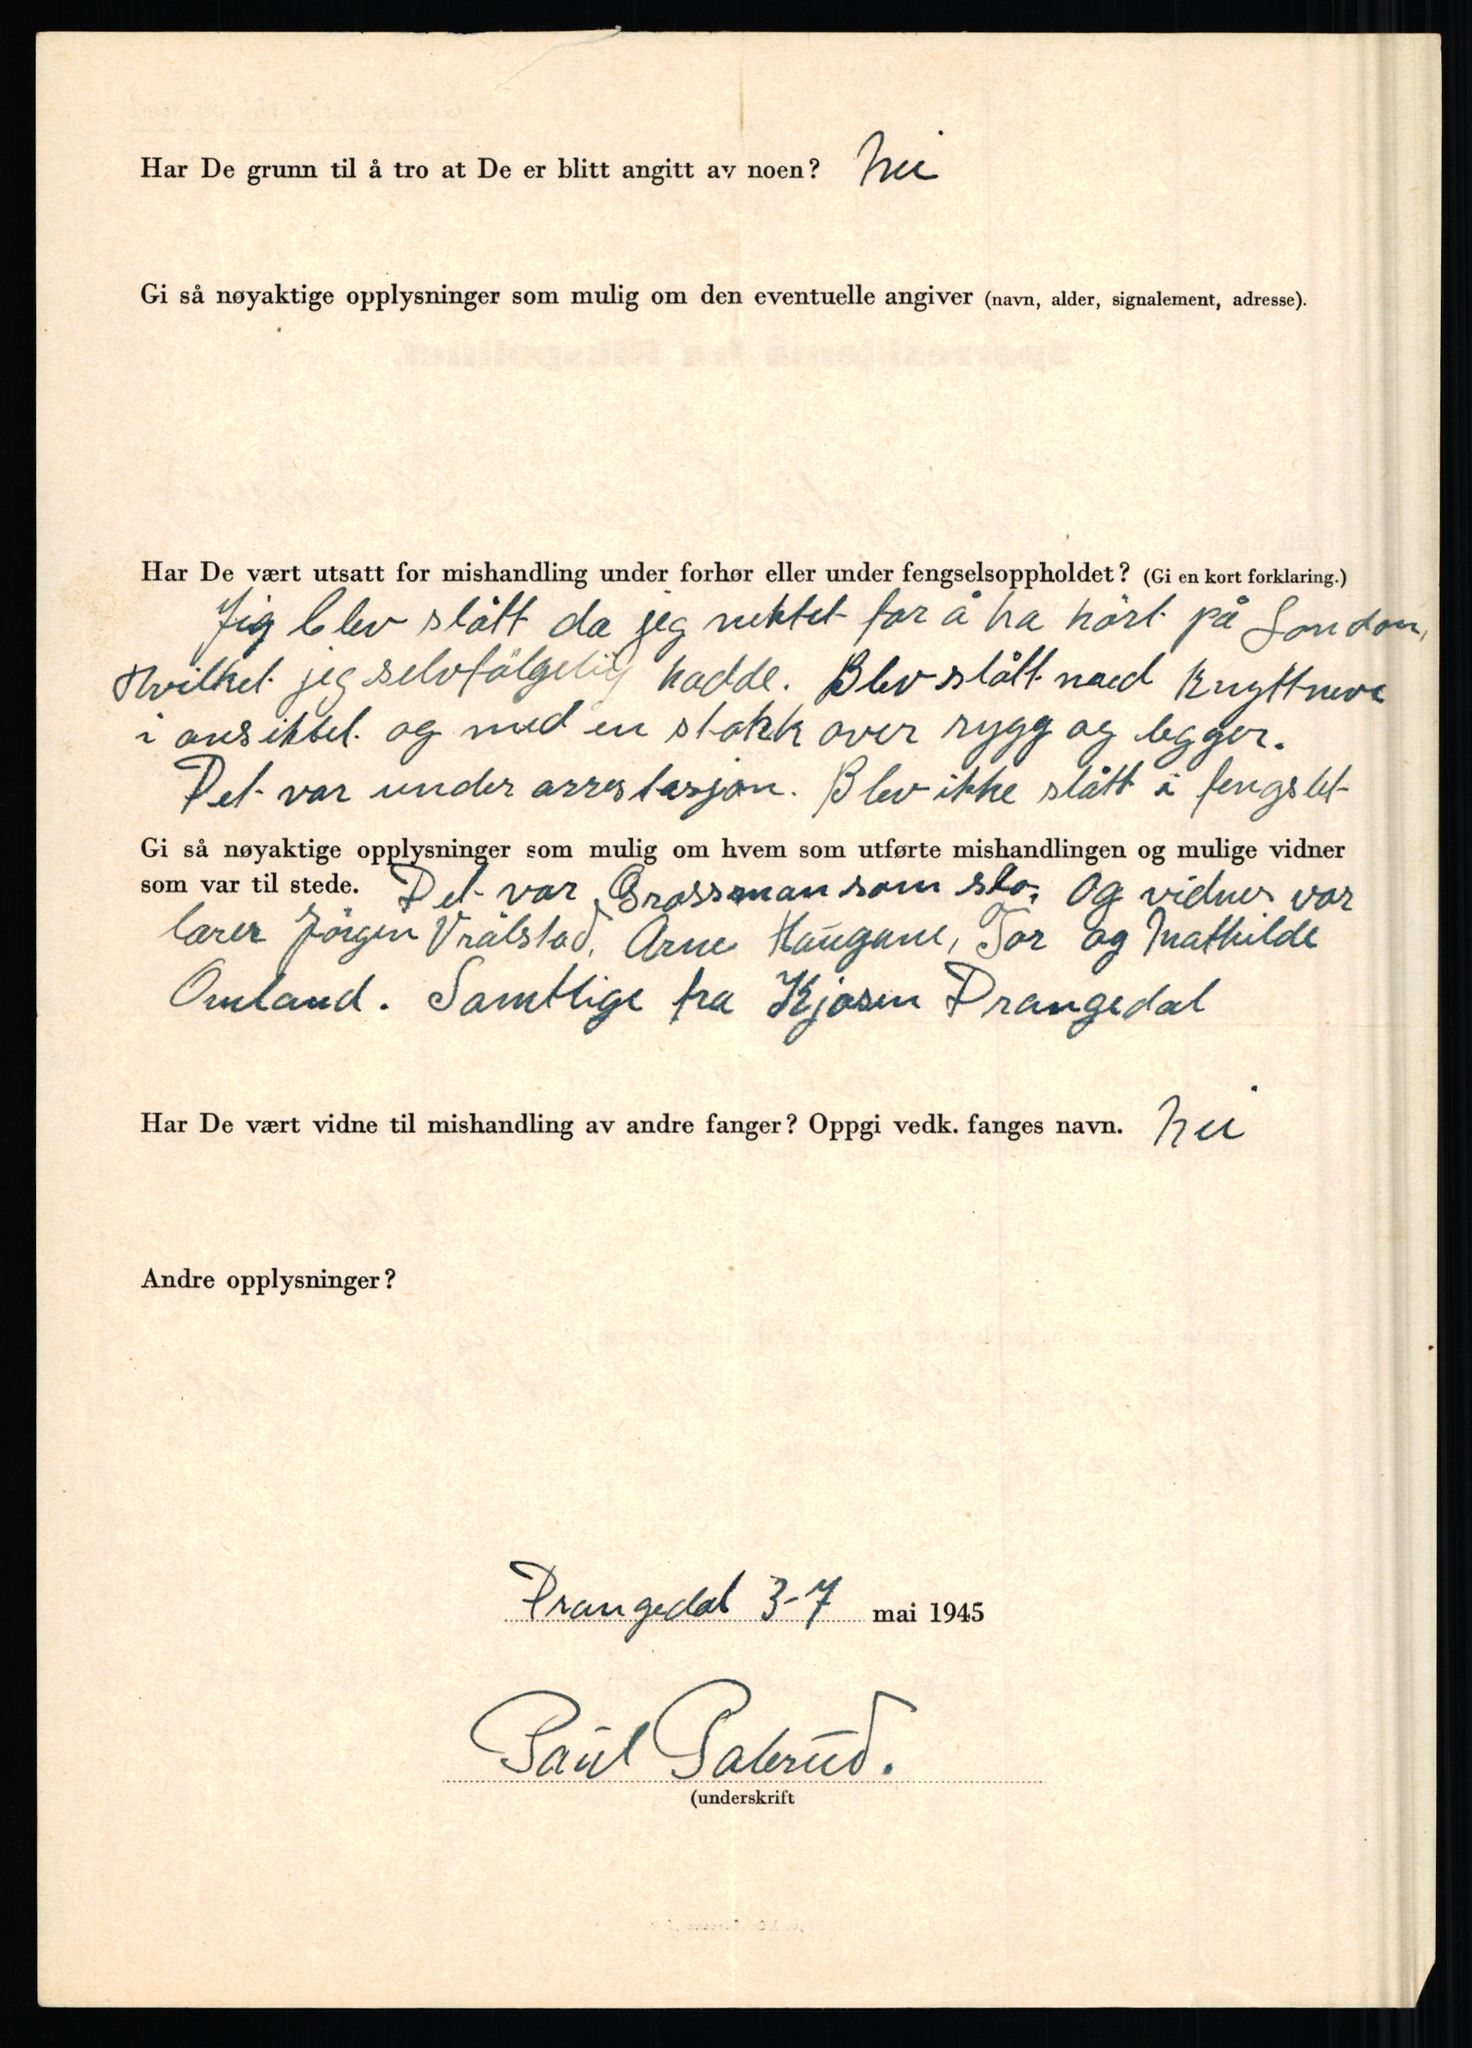 Har De grunn til å tro at De er blitt angitt av noen? Nei
Gi så nøyaktige opplysninger som mulig om den eventuelle angiver (navn, alder, signalement, adresse).
Har De vært utsatt for mishandling under forhør eller under fengselsoppholdet? (Gi en kort forklaring.)
Jeg blev slått da jeg nektet for å ha hört på London,
Hvilket jeg selvfölgelig hadde. Blev slått med knyttneve
i ansiktet og med en stokk over rygg og legger.
Det var under arrestasjon. Blev ikke slått i fengslet
Gi så nøyaktige opplysninger som mulig om hvem som utførte mishandlingen og mulige vidner
som var til stede. Det var Grossman som slo. Og vidner var
lærer Jörgen Vrålstad, Arne Haugane, Tor og Mathilde
Omland. Samtlige fra Kjosen Drangedal
Har De vært vidne til mishandling av andre fanger? Oppgi vedk. fanges navn. Nei
Andre opplysninger?
Drangedal 3-7 mai 1945
Paul Palerud.
(underskrift